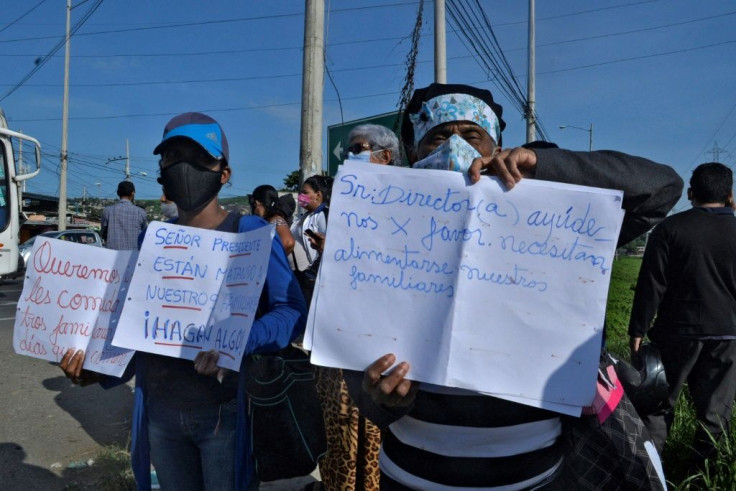 Queremos
les comid
tros famil
días que
SEÑOR PRESIDENTE
ESTÁN MATANDO A
NUESTROS FAMILIARES
¡HAGAN ALGO!
Sr. Director(a) ayúde-
nos X favor. necesitan
alimentarse nuestros
familiares